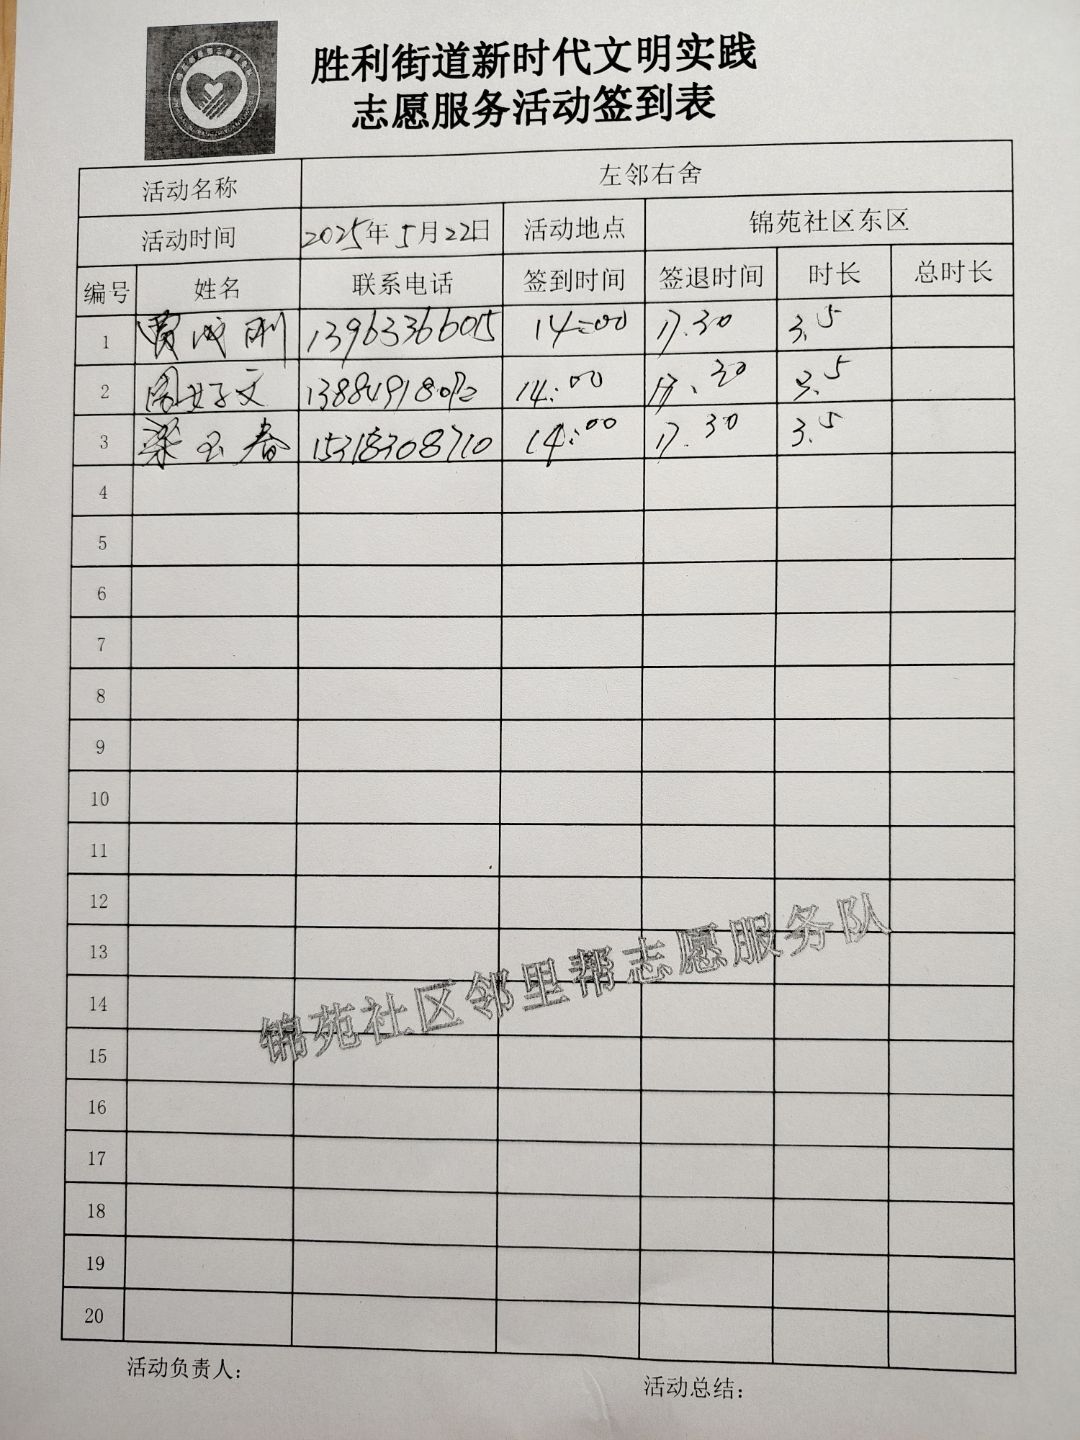 胜利街道新时代文明实践
志愿服务活动签到表
活动名称 左邻右舍
活动时间 2025年5月22日 活动地点 锦苑社区东区
编号 姓名 联系电话 签到时间 签退时间 时长 总时长
1 贾成刚 13963366015 14:00 17.30 3.5
2 周好文 14:00 17.30 3.5
3 梁玉春 15318308710 14:00 17.30 3.5
4
5
6
7
8
9
10
11
12
13
14
15
16
17
18
19
20
锦苑社区邻里帮志愿服务队
活动负责人:
活动总结: